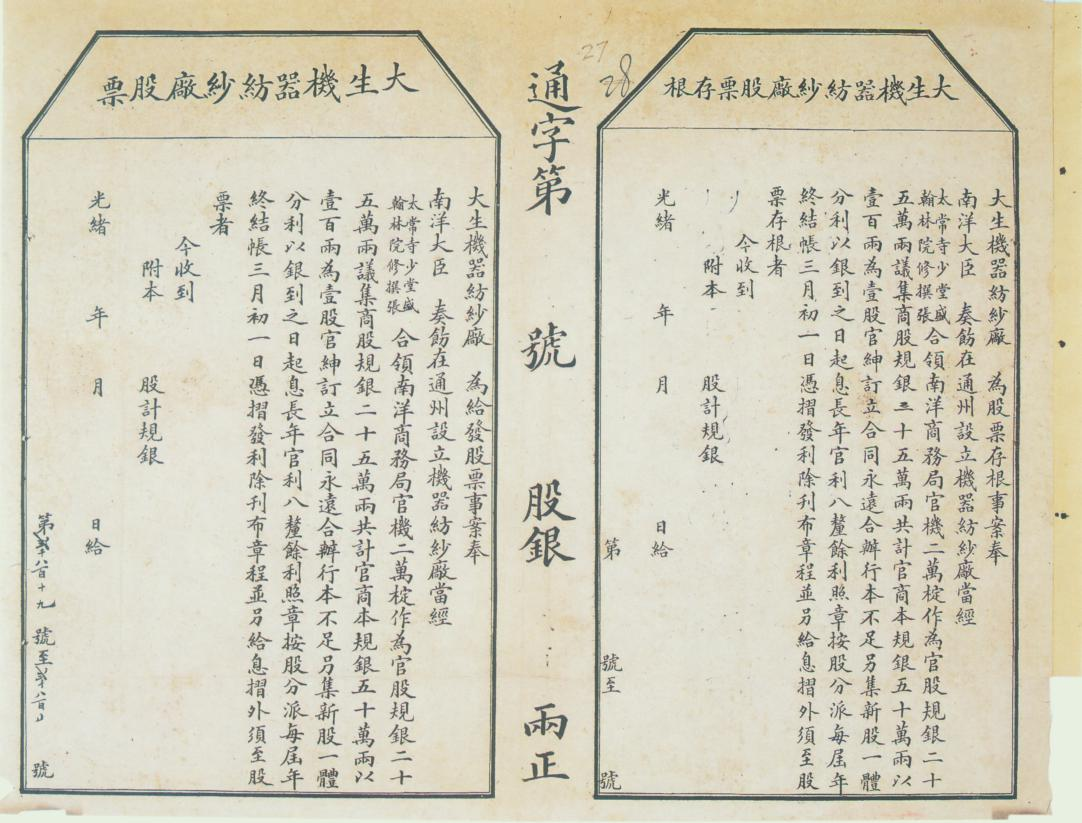 大生機器紡紗廠股票存根
大生機器紡紗廠　為股票存根事案奉
南洋大臣　奏飭在通州設立機器紡紗廠當經
太常寺少堂盛
翰林院修撰張
合領南洋商務局官機二萬椗作為官股規銀二十
五萬兩議集商股規銀二十五萬兩共計官商本規銀五十萬兩以
壹百兩為壹股官紳訂立合同永遠合辦行本不足另集新股一體
分利以銀到之日起息長年官利八釐餘利照章按股分派每屆年
終結帳三月初一日憑摺發利除刊布章程並另給息摺外須至股
票存根者
今收到
附本　股計規銀
光緒　年　月　日給
第　號至　號
27
28
通字第　號　股銀　兩正
大生機器紡紗廠股票
大生機器紡紗廠　為給發股票事案奉
南洋大臣　奏飭在通州設立機器紡紗廠當經
太常寺少堂盛
翰林院修撰張
合領南洋商務局官機二萬椗作為官股規銀二十
五萬兩議集商股規銀二十五萬兩共計官商本規銀五十萬兩以
壹百兩為壹股官紳訂立合同永遠合辦行本不足另集新股一體
分利以銀到之日起息長年官利八釐餘利照章按股分派每屆年
終結帳三月初一日憑摺發利除刊布章程並另給息摺外須至股
票者
今收到
附本　股計規銀
光緒　年　月　日給
第　八百十九　號至　八百　號